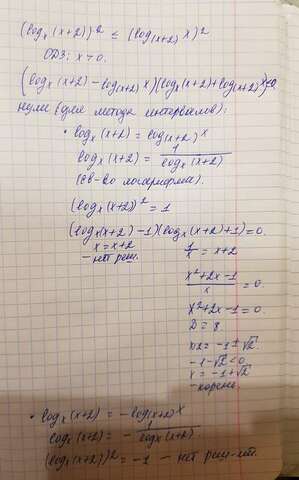 (log_x (x+2))² ≤ (log_(x+2) x)²
ОДЗ: x>0.
(log_x (x+2) - log_(x+2) x)(log_x (x+2) + log_(x+2) x) ≤ 0.
нули (для метода интервалов):
• log_x (x+2) = log_(x+2) x
log_x (x+2) = 1/log_x (x+2)
(св-во логарифма).
(log_x (x+2))² = 1
(log_x (x+2) - 1)(log_x (x+2) + 1) = 0.
x = x+2
- нет реш.
1/x = x+2
(x²+2x-1)/x = 0.
x²+2x-1=0.
D = 8
-1 ± √2.
-1-√2<0
x = -1+√2
- корень
• log_x (x+2) = -log_(x+2) x
log_x (x+2) = - 1/log_x (x+2).
(log_x (x+2))² = -1 - нет реш-ий.